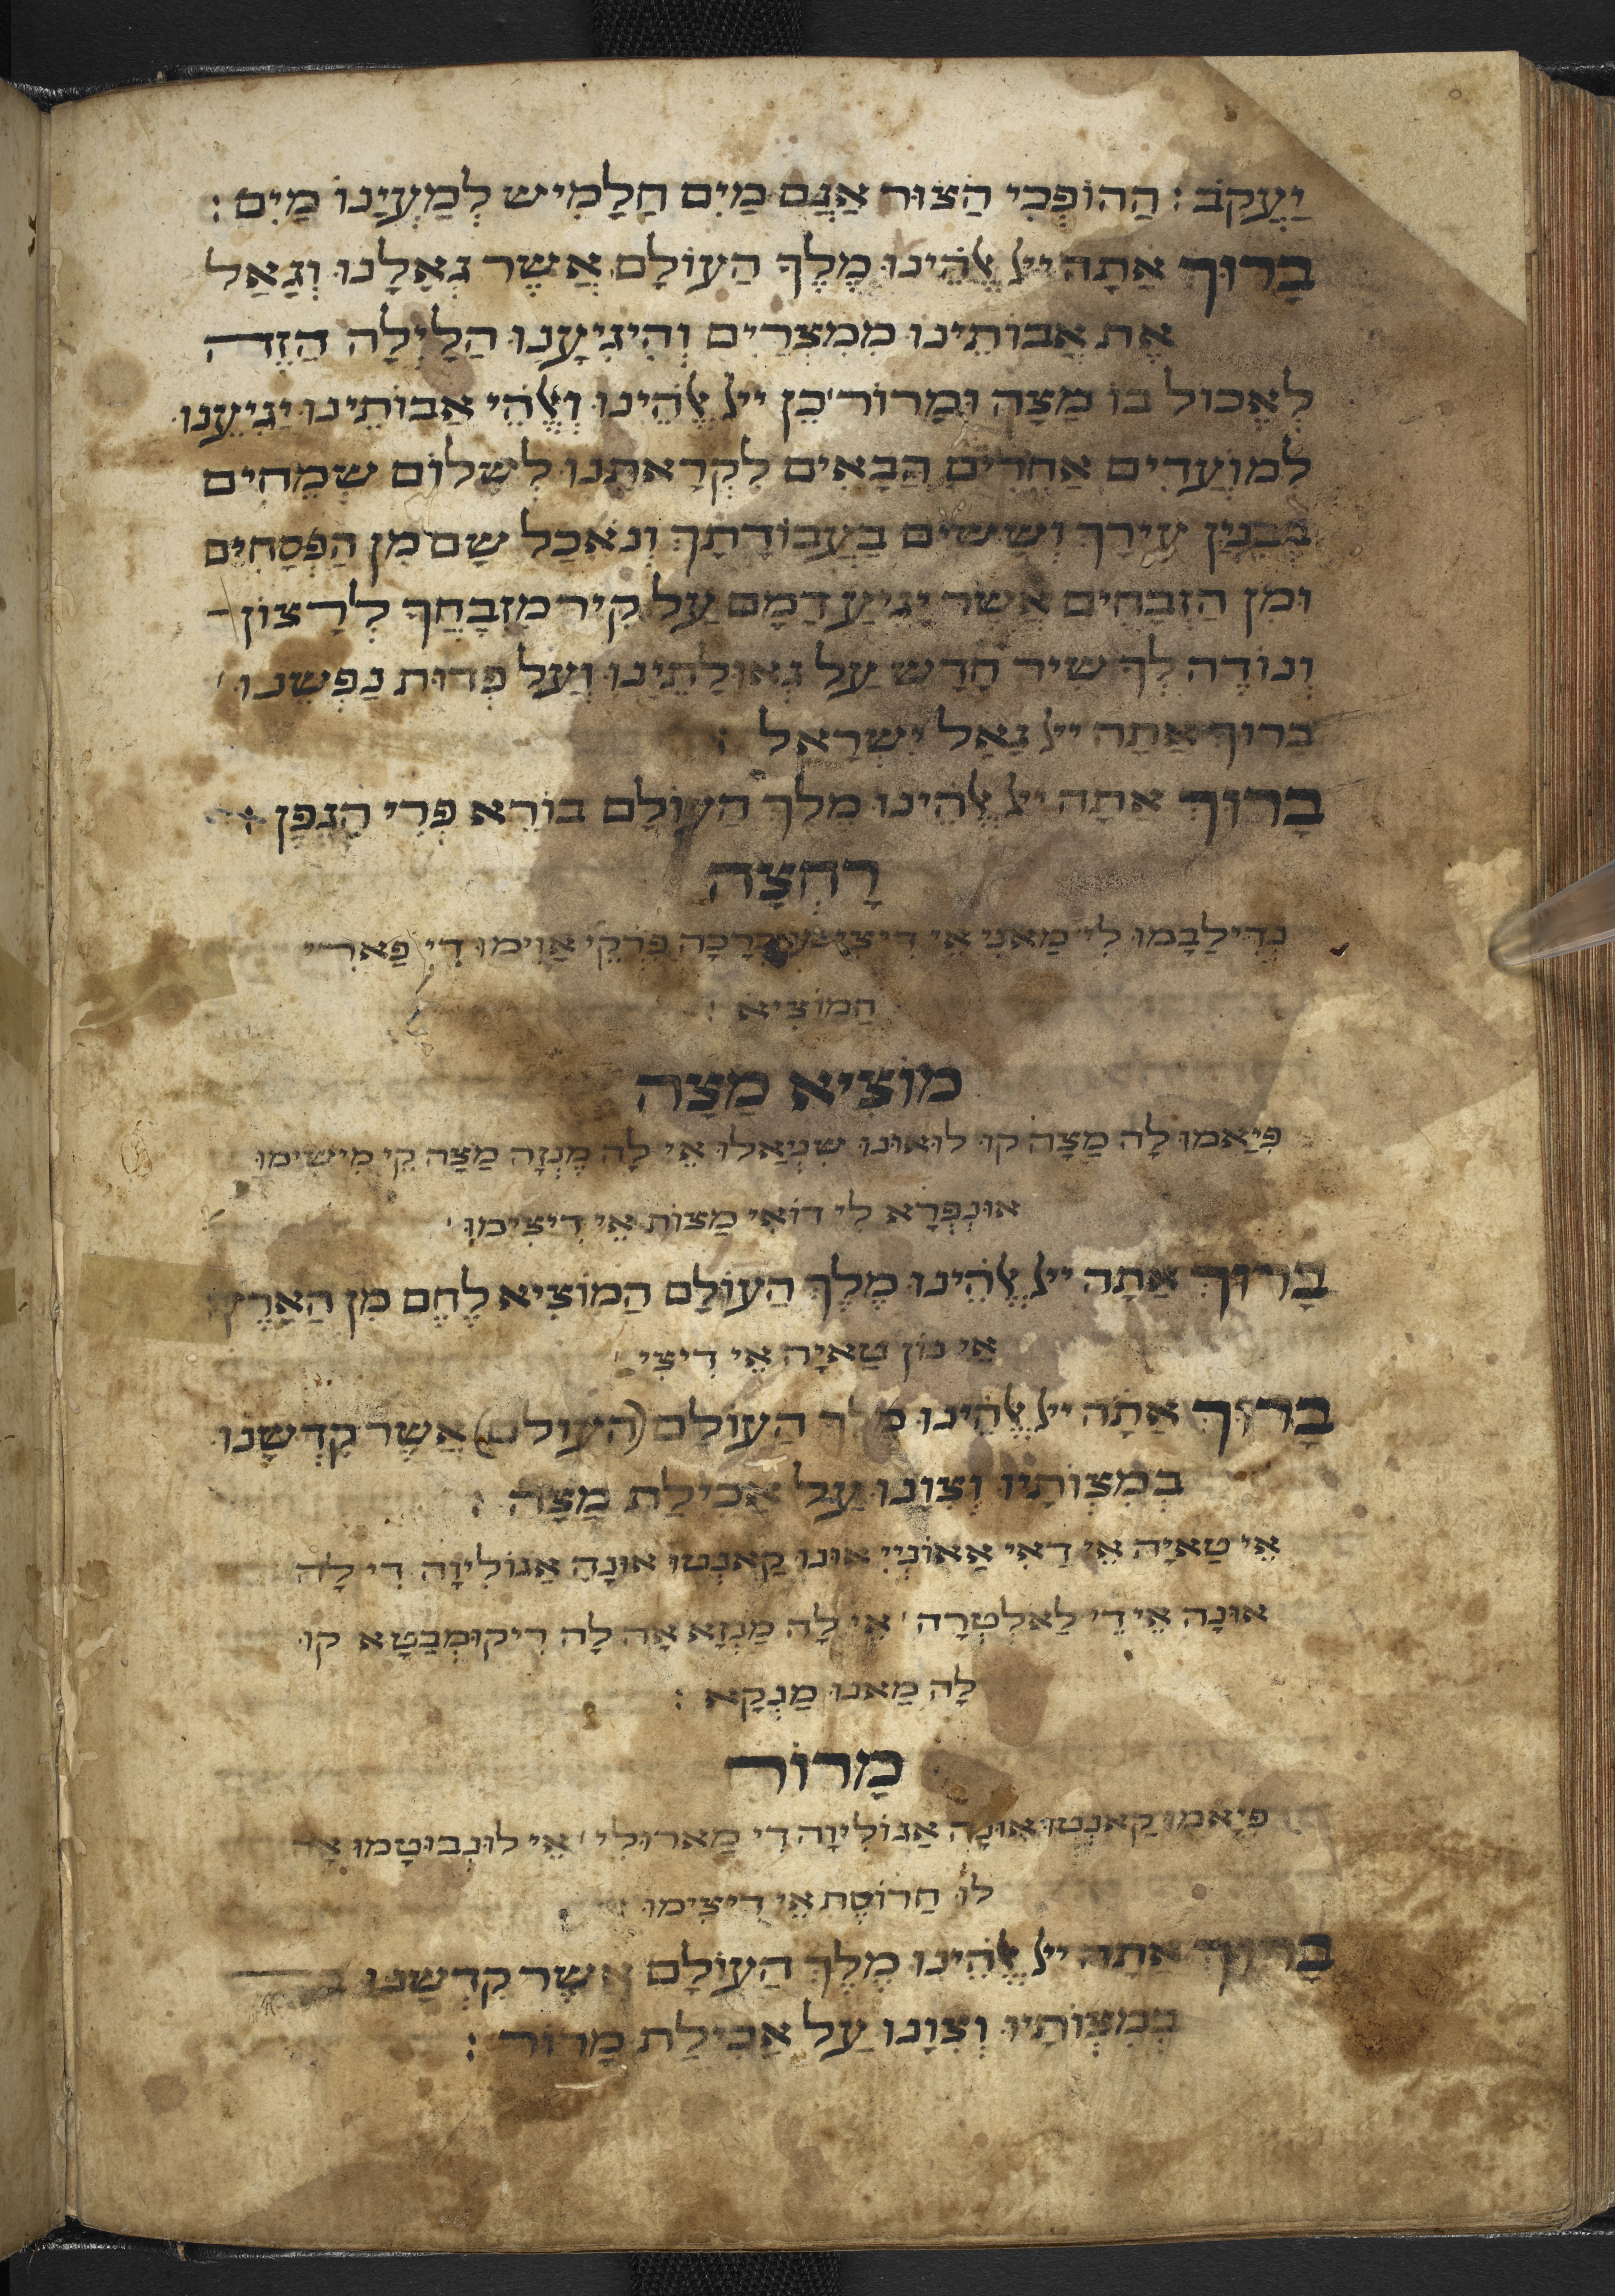 יַעֲקֹב : הַהוֹפְכִי הַצּוּר אֲגַם מַיִם חַלָּמִישׁ לְמַעְיְנוֹ מַיִם :
בָּרוּךְ אַתָּה ייָ אֱלֹהֵינוּ מֶלֶךְ הָעוֹלָם אֲשֶׁר גְּאָלָנוּ וְגָאַל
אֶת אֲבוֹתֵינוּ מִמִּצְרַיִם וְהִיגִּיעָנוּ הַלַּיְלָה הַזֶּה
לֶאֱכוֹל בּוֹ מַצָּה וּמָרוֹר כֵּן ייָ אֱלֹהֵינוּ וֵאלֹהֵי אֲבוֹתֵינוּ יַגִּיעֵנוּ
לְמוֹעֲדִים אֲחֵרִים הַבָּאִים לִקְרָאתֵנוּ לְשָׁלוֹם שְׂמֵחִים
בְּבִנְיָן עִירָךְ וְשָׂשִׂים בַּעֲבוֹדָתָךְ וְנֹאכַל שָׁם מִן הַפְּסָחִים
וּמִן הַזְּבָחִים אֲשֶׁר יַגִּיעַ דָּמָם עַל קִיר מִזְבָּחֲךָ לְרָצוֹן
וְנוֹדֶה לְךָ שִׁיר חָדָשׁ עַל גְּאוּלָּתֵינוּ וְעַל פְּדוּת נַפְשֵׁנוּ
בָּרוּךְ אַתָּה ייָ גָּאַל יִשְׂרָאֵל :
בָּרוּךְ אַתָּה ייָ אֱלֹהֵינוּ מֶלֶךְ הָעוֹלָם בּוֹרֵא פְּרִי הַגָּפֶן :
רָחְצָה
לִי מַאנִי אֵי בְּרָכָה פֵּרְקֵי אַוִימוּ דִי פַארִי
הַמּוֹצִיא :
מוֹצִיא מַצָּה
פִּיַאמוּ לָה מַצָּה קוּ לוּאוּנוּ שִׁנְיַאלוּ אֵי לָה מֶנְזָה מַצָּה קִי מִישִׁימוּ
אוּנְפְרָא לִי דוֹאִי מַצּוֹת אֵי דִיצִימוּ
בָּרוּךְ אַתָּה ייָ אֱלֹהֵינוּ מֶלֶךְ הָעוֹלָם הַמּוֹצִיא לֶחֶם מִן הָאָרֶץ
אֵי נוֹן טַאיָה אֵי דִיצִי
בָּרוּךְ אַתָּה ייָ אֱלֹהֵינוּ מֶלֶךְ הָעוֹלָם (העולם) אֲשֶׁר קִדְּשָׁנוּ
בְּמִצְוֹתָיו וְצִוָּנוּ עַל אֲכִילַת מַצָּה :
אֵי טַאיָה אֵי דַאִי אַאוֹנְיִי אוּנוּ קַאנְטוּ אוּנָה אַגוֹלִיוָה דִי לָה
אוּנָה אֵי דִי לַאלְטְרָה אֵי לָה מַנְזָא אָה לָה רִיקוּמְבַטָא קוּ
לָה מַאנוּ מַנְקָא :
מָרוֹר
פִּיָאמוּ קַאנְטוּ אוּנָה אַגוֹלִיוָה דִי מַארוּלִי אֵי לוּנְבוּטָמוּ אָה
לוֹ חַרוֹסֶת אֵי דִיצִימוּ
בָּרוּךְ אַתָּה ייָ אֱלֹהֵינוּ מֶלֶךְ הָעוֹלָם אֲשֶׁר קִדְּשָׁנוּ
בְּמִצְוֹתָיו וְצִוָּנוּ עַל אֲכִילַת מָרוֹר :